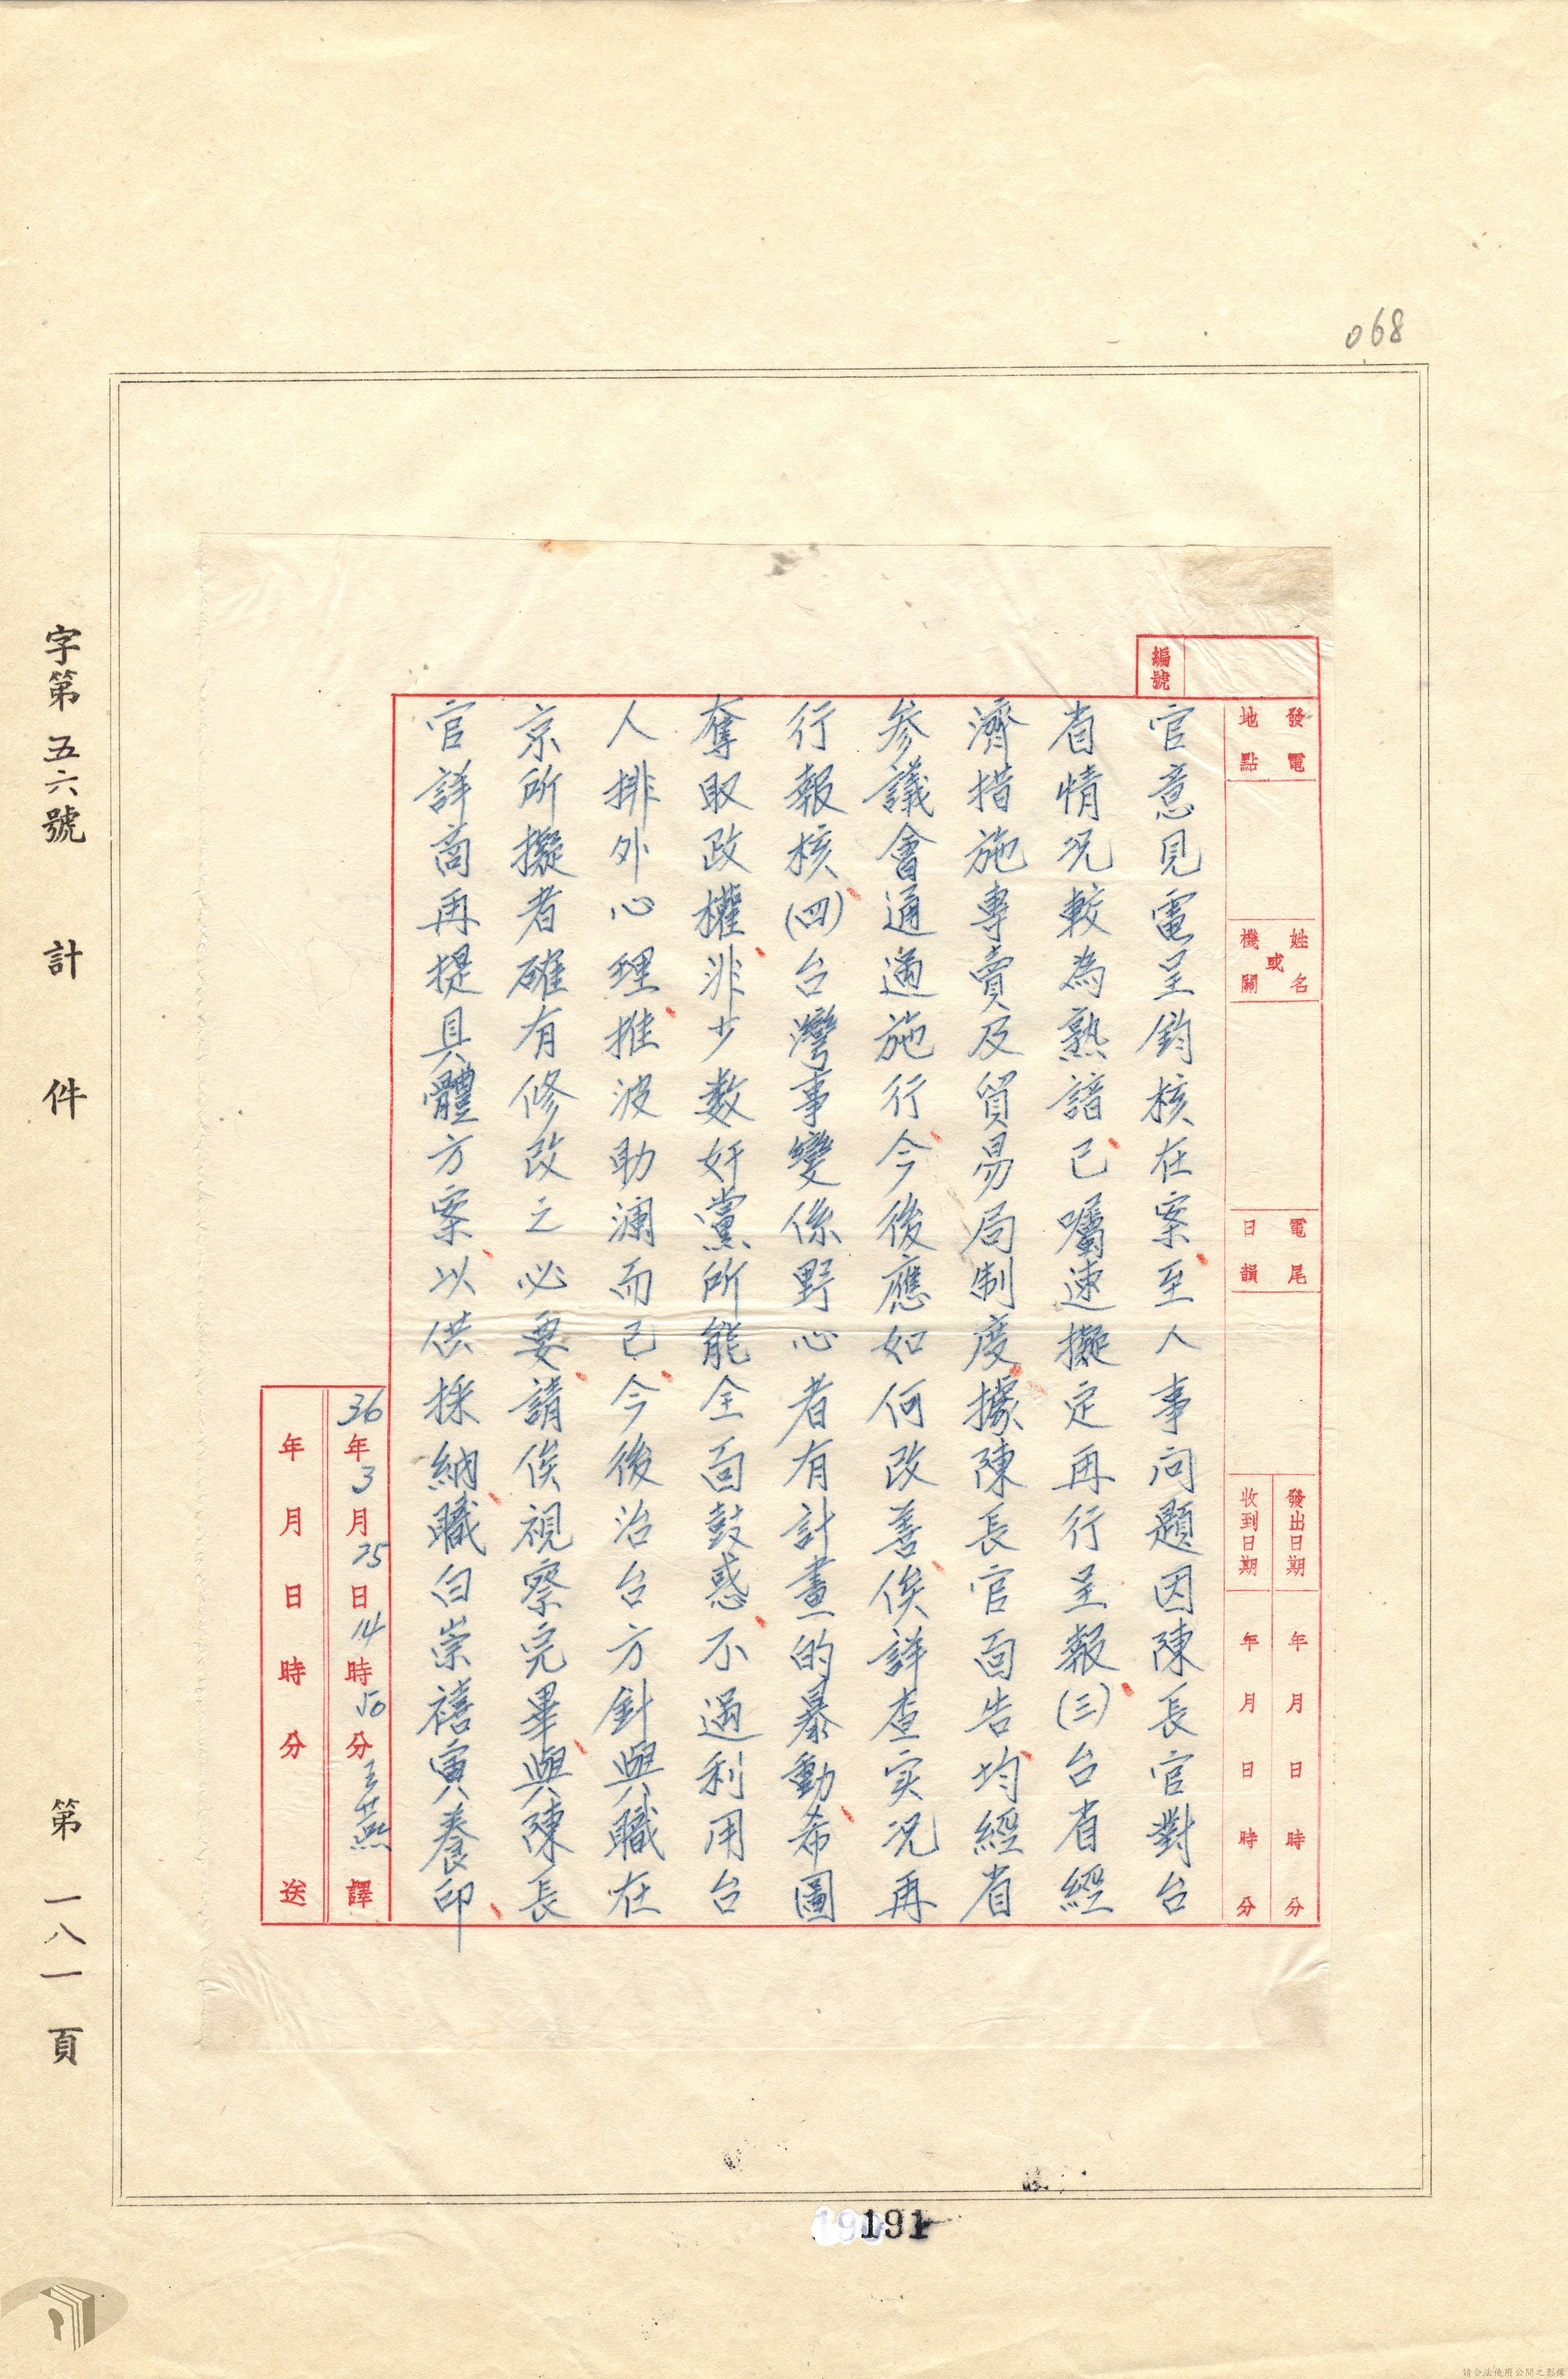 068
編號
發電地點
姓名或機關
電尾日韻
發出日期 年 月 日 時 分
收到日期 年 月 日 時 分
官意見電呈鈞核在案至人事问題因陳長官對台
省情况較為熟諳已囑速擬定再行呈報(三)台省經
濟措施專賣及貿易局制度據陳長官面告均經省
參議會通過施行今後應如何改善俟詳查实况再
行報核(四)台灣事變係野心者有計畫的暴動希圖
奪取政權非少數奸黨所能全面鼓惑不過利用台
人排外心理推波助瀾而已今後治台方針與職在
京所擬者確有修改之必要請俟視察完畢與陳長
官詳商再提具體方案以供採納職白崇禧寅養印
36年3月25日14時50分 譯
年 月 日 時 分 送
字第五六號 計 件 第一八一頁
191
請合法使用公開之影像